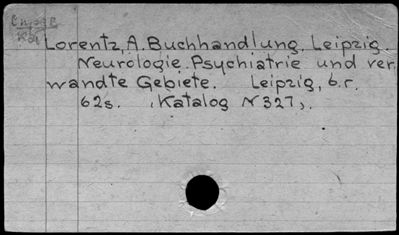 Lorentz, A. Buchhandlung, Leipzig.
Neurologie. Psychiatrie und ver
wandte Gebiete. Leipzig, b.r.
62s. (Katalog N 327).